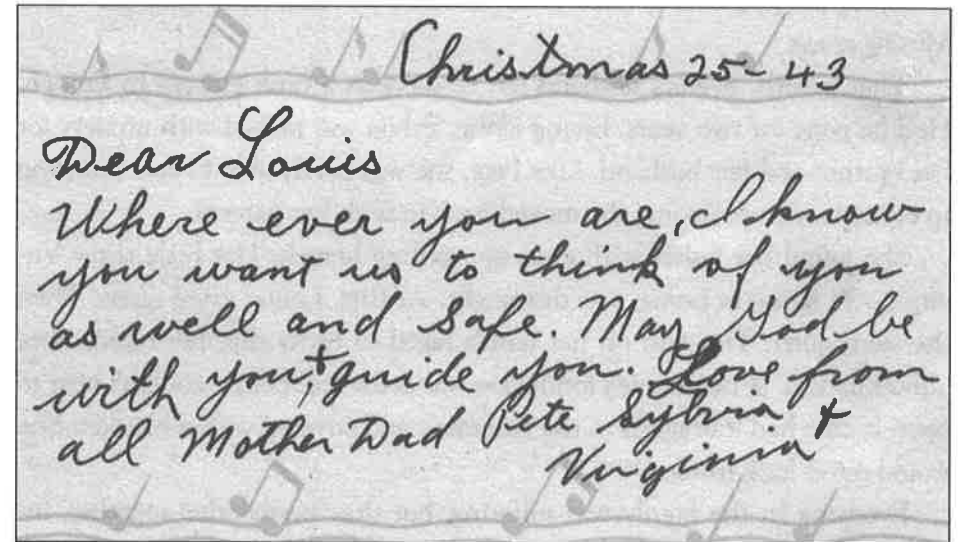 Christmas 25-43
Dear Louis
Where ever you are, I know
you want us to think of you
as well and safe. May God be
with you, + guide you. Love from
all Mother Dad Pete Sylvia +
Virginia